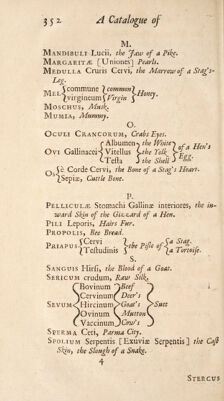 352 A Catalogue of
M.
MANDIBULI Lucii, the Jaw of a Pike.
MARGARITÆ [Uniones] Pearls.
MEDULLA Cruris Cervi, the Marrow of a Stag's-
Leg.
MEL { commune } common } Honey.
{ virgineum } Virgin }
MOSCHUS, Musk.
MUMIA, Mummy.
O.
OCULI CRANCORUM, Crabs Eyes.
OVI Gallinacei { Albumen } the White } of a Hen's
{ Vitellus } the Yolk } Egg.
{ Testa } the Shell }
OS { è Corde Cervi, the Bone of a Stag's Heart.
{ Sepiæ, Cuttle Bone.
P.
PELLICULÆ Stomachi Gallinæ interiores, the in-
ward Skin of the Gizzard of a Hen.
PILI Leporis, Hairs Fur.
PROPOLIS, Bee Bread.
PRIAPUS { Cervi } the Pisle of { a Stag.
{ Testudinis } { a Tortoise.
S.
SANGUIS Hirsi, the Blood of a Goat.
SERICUM crudum, Raw Silk.
SEVUM { Bovinum } Beef } Suet
{ Cervinum } Deer's
{ Hircinum } Goat's
{ Ovinum } Mutton
{ Vaccinum } Cow's
SPERMA Ceti, Parma City.
SPOLIUM Serpentis [Exuviæ Serpentis] the Cast
Skin, the Slough of a Snake.
4
STERCUS